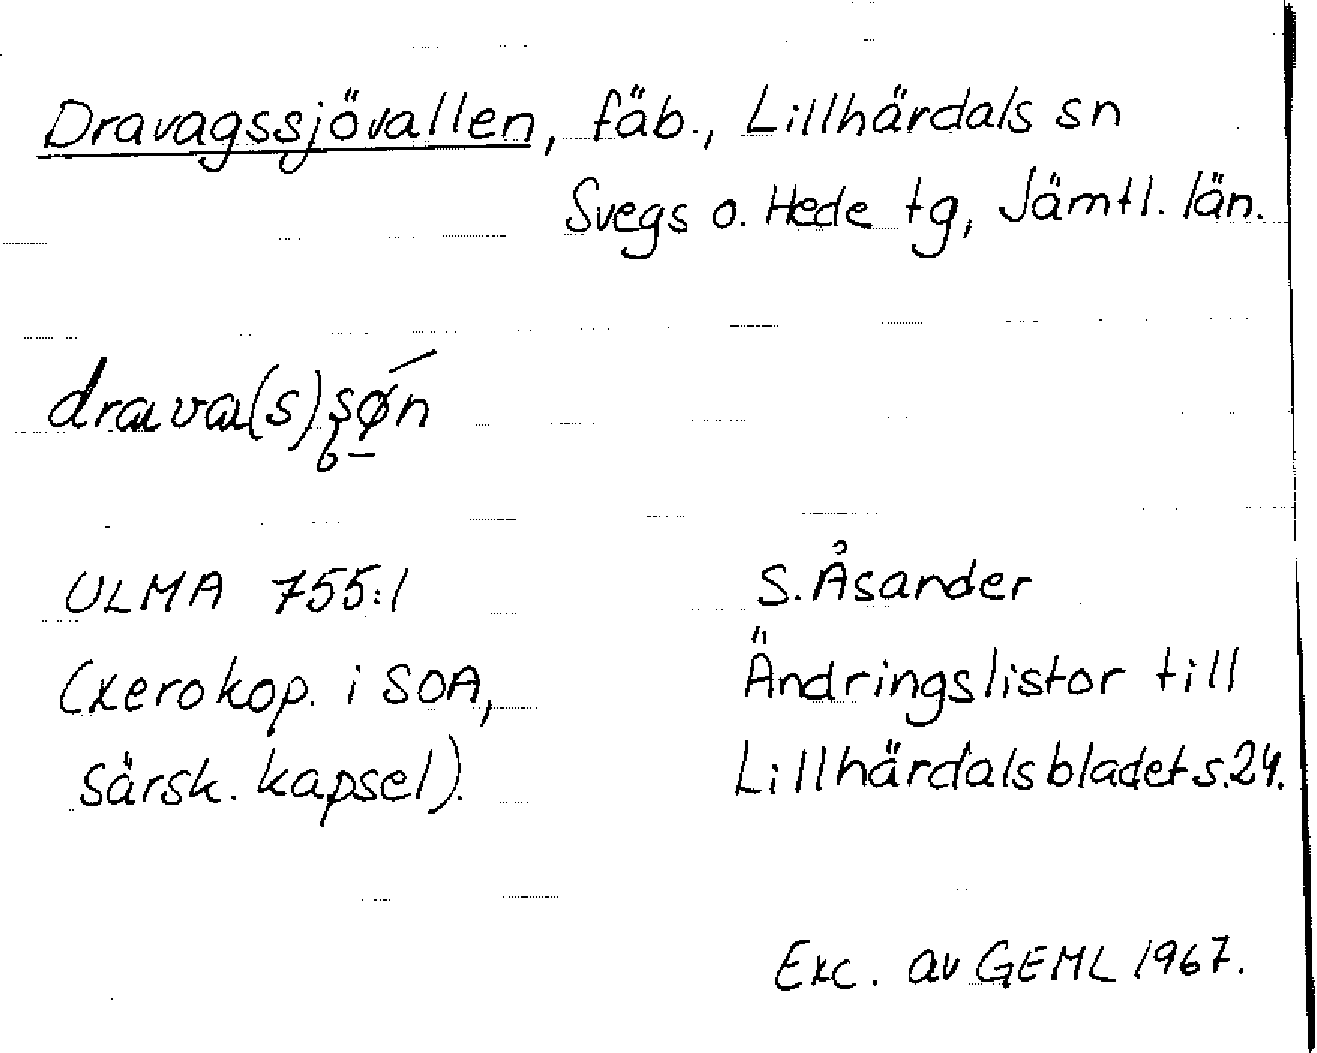 Dravagssjövallen, fäb., Lillhärdals sn
Svegs o. Hede tg, Jämtl. län.
drava(s)şǿ̠n
ULMA 755:1
(xerokop. i SOA,
särsk. kapsel).
S. Åsander
Ändringslistor till
Lillhärdalsbladet s. 24.
Exc. av GEML 1967.